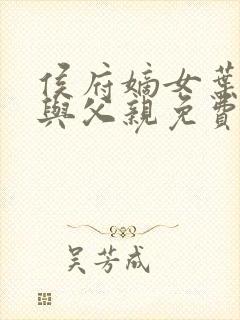 侯府嫡女葉
與父親免費
吴芳成